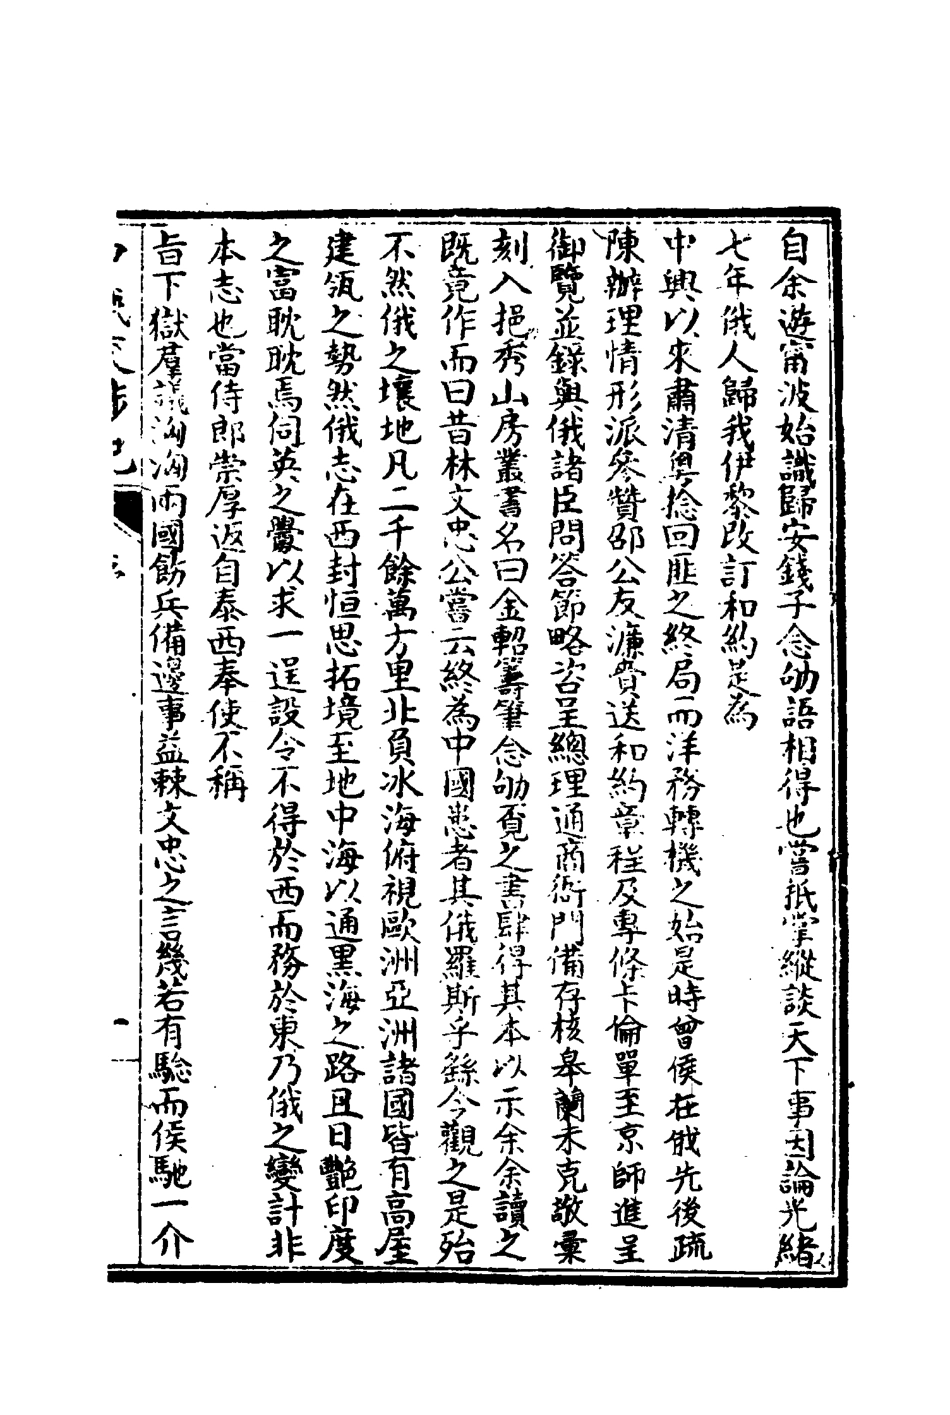 自余遊甯波始識歸安錢子念劬語相得也嘗抵掌縱談天下事因論光緒
七年俄人歸我伊黎改訂和約是為
中興以來肅清粤捻回匪之終局而洋務轉機之始是時曾侯在俄先後疏
陳辦理情形派參贊邵公友濂賫送和約章程及專條卡倫單至京師進呈
御覽並錄與俄諸臣問答節略咨呈總理通商衙門備存核皋蘭未克敬彙
刻入挹秀山房叢書名曰金軺籌筆念劬覓之書肆得其本以示余余讀之
既竟作而曰昔林文忠公嘗云終為中國患者其俄羅斯乎繇今觀之是殆
不然俄之壤地凡二千餘萬方里北負冰海俯視歐洲亞洲諸國皆有高屋
建瓴之勢然俄志在西封恒思拓境至地中海以通黑海之路且日豔印度
之富耽耽焉伺英之釁以求一逞設令不得於西而務於東乃俄之變計非
本志也當侍郎崇厚返自泰西奉使不稱
旨下獄羣議洶洶兩國飭兵備邊事益棘文忠之言幾若有驗而侯馳一介